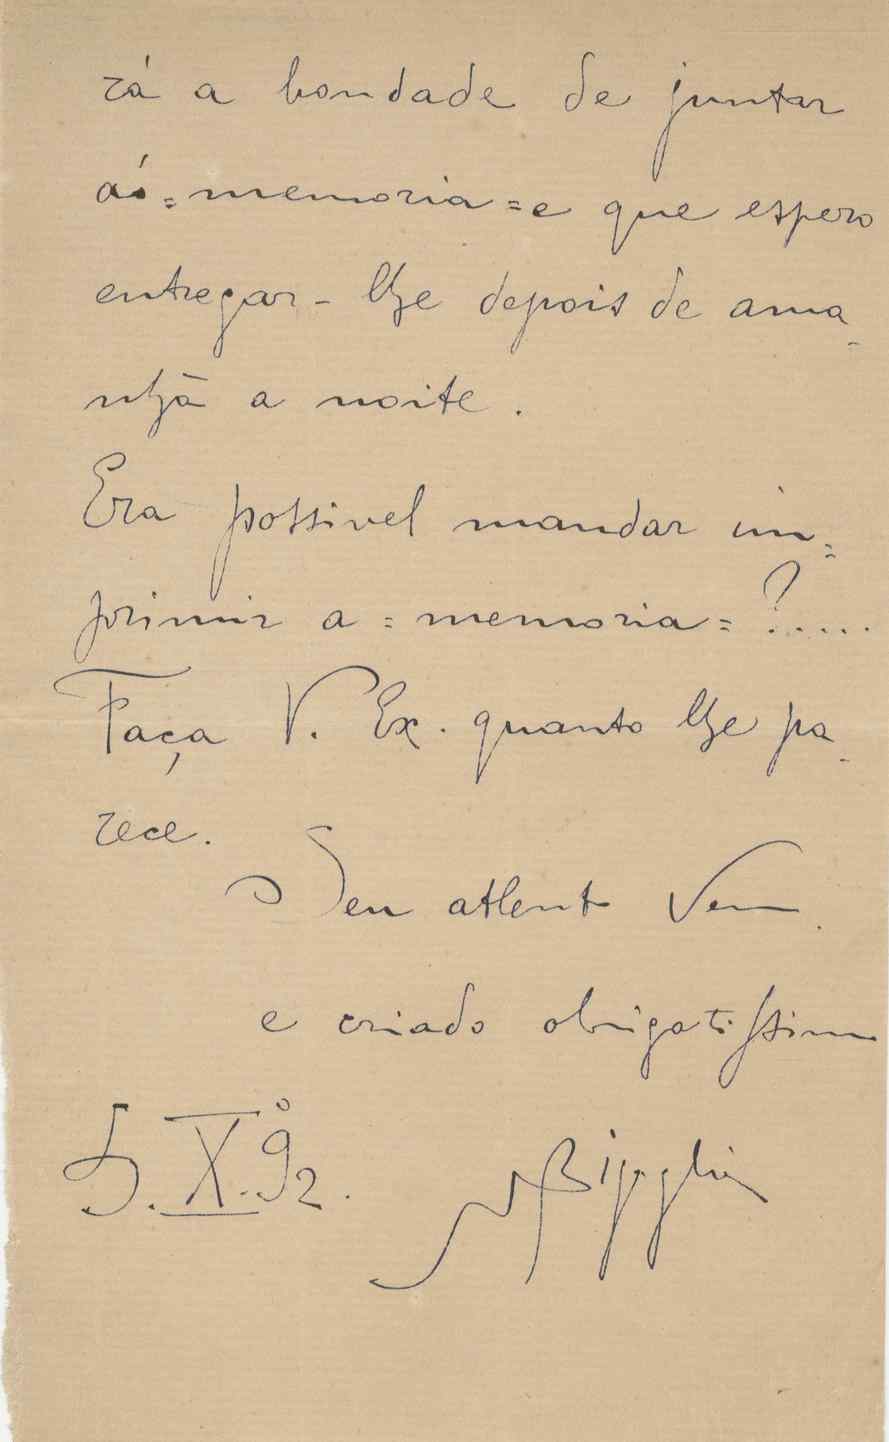 rá a bondade de juntar
ás =memoria= e que espero
entregar-lhe depois de ama-
nhã a noite.
Era possivel mandar im=
primir a =memoria= ?.....
Faça V. Ex. quanto lhe pa-
rece.
Seu attent Ven
e criado obrigatissimo
5.X.92.